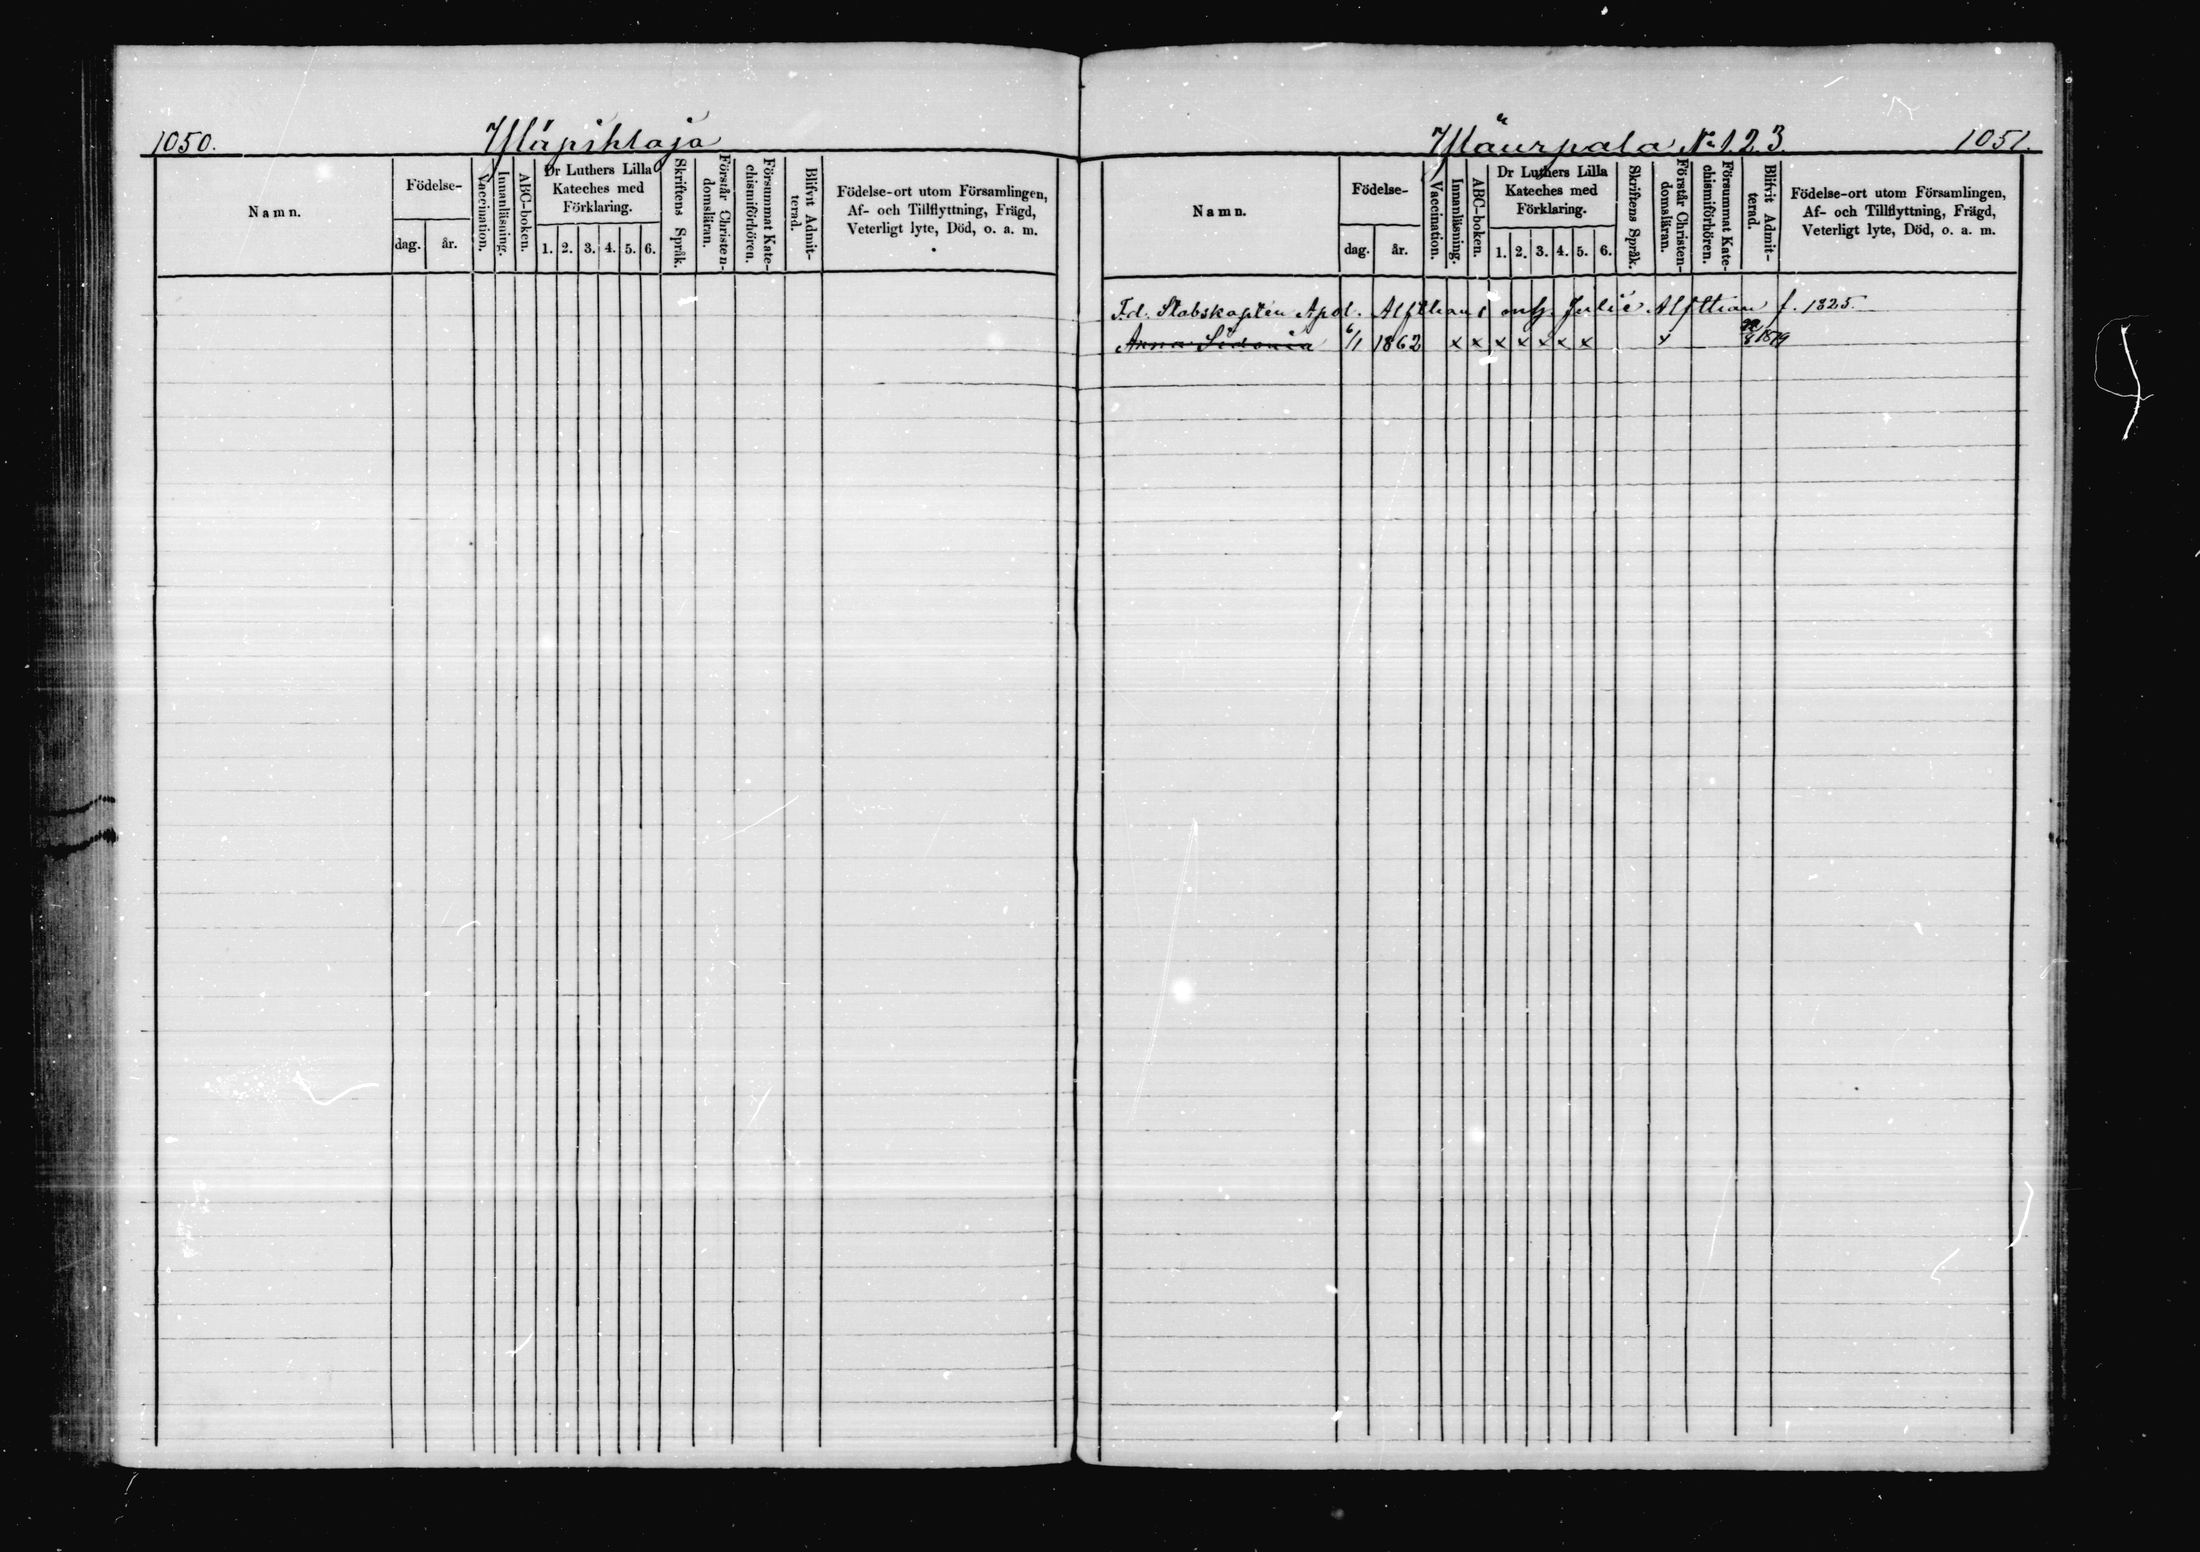 1050.
Yläpihlaja
Namn.
Födelse-
dag.
år.
Vaccination.
Innanläsning.
ABC-boken.
Dr Luthers Lilla
Kateches med
Förklaring.
1. 2. 3. 4. 5. 6.
Skriftens Språk.
Förstår Christen-
domsläran.
Försummat Kate-
chismiförhören.
Blifvit Admit-
terad.
Födelse-ort utom Församlingen,
Af- och Tillflyttning, Frägd,
Veterligt lyte, Död, o. a. m.
Yläurpala No 1. 2. 3.
1051.
Namn.
Födelse-
dag.
år.
Vaccination.
Innanläsning.
ABC-boken.
Dr Luthers Lilla
Kateches med
Förklaring.
1. 2. 3. 4. 5. 6.
Skriftens Språk.
Förstår Christen-
domsläran.
Försummat Kate-
chismiförhören.
Blifvit Admit-
terad.
Födelse-ort utom Församlingen,
Af- och Tillflyttning, Frägd,
Veterligt lyte, Död, o. a. m.
F.d. Stabskapten Apol. Alfthans Julie Alfthan f. 1825.
Anna Sidonia 6/1 1862 x x x x x x x x 1879